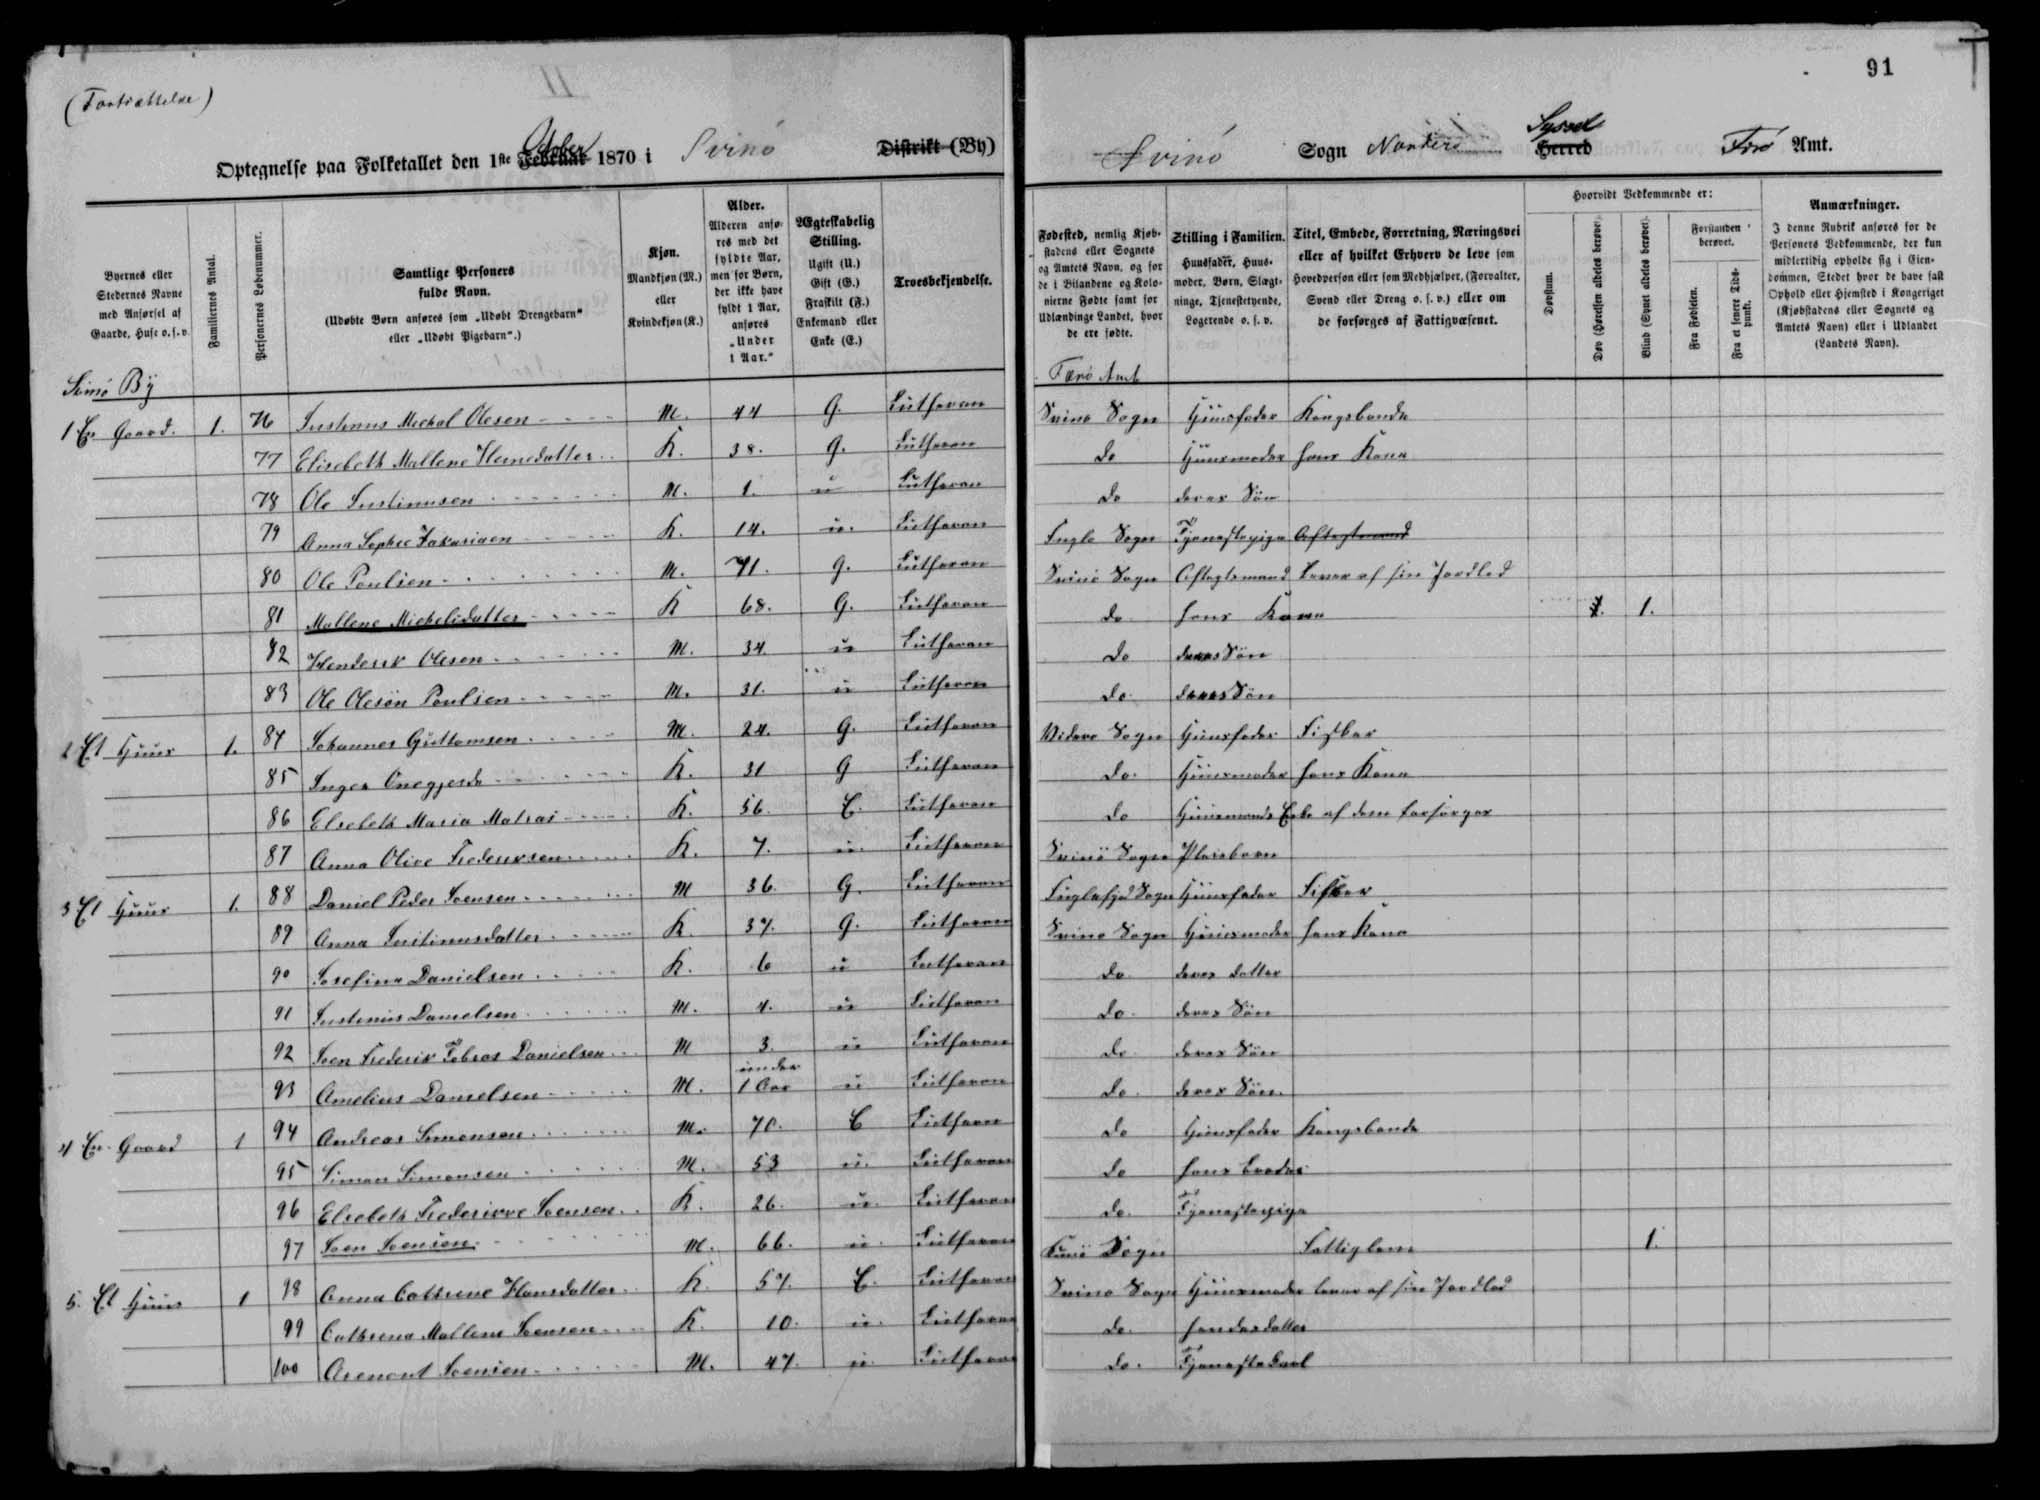 91
(Fortsættelse)
Optegnelse paa Folketallet den 1ste Februar October 1870 i Svinö Distrikt (By)
Svinö Sogn Norderö Herred Syssel Färö Amt.
Byernes eller Stedernes Navne med Anførsel af Gaarde, Huse o.s.v.
Familiernes Antal.
Personernes Løbenummer.
Samtlige Personers fulde Navn.
(Udøbte Børn anføres som „Udøbt Drengebarn“ eller „Udøbt Pigebarn“.)
Kjøn.
Mandkjøn (M.) eller Kvindekjøn (K.)
Alder.
Alderen anføres med det fyldte Aar, men for Børn, der ikke have fyldt 1 Aar, anføres „Under 1 Aar.“
Ægteskabelig Stilling.
Ugift (U.) Gift (G.) Fraskilt (F.) Enkemand eller Enke (E.)
Troesbekjendelse.
Fødested, nemlig Kjøbstadens eller Sognets og Amtets Navn, og for de i Bilandene og Kolonierne Fødte samt for Udlændinge Landet, hvor de ere fødte.
Stilling i Familien.
Huusfader, Huusmoder, Børn, Slægtninge, Tjenestetyende, Logerende o. s. v.
Titel, Embede, Forretning, Næringsvei eller af hvilket Erhverv de leve som Hovedperson eller som Medhjælper, (Forvalter, Svend eller Dreng o. s. v.) eller om de forsørges af Fattigvæsenet.
Hvorvidt Vedkommende er:
Døvstum.
Døv (Hørelsen aldeles berøvet).
Blind (Synet aldeles berøvet).
Forstanden berøvet.
Fra Fødselen.
Fra et senere Tidspunkt.
Anmærkninger.
I denne Rubrik anføres for de Personers Vedkommende, der kun midlertidig opholde sig i Eiendommen, Stedet hvor de have fast Ophold eller Hjemsted i Kongeriget (Kjøbstadens eller Sognets og Amtets Navn) eller i Udlandet (Landets Navn).
Svinö By Færö Amt
1 En Gaard. 1. 76 Justinus Michal Olesen M. 44 G. Lutheran Svinö Sogn Huusfader Kongsbonde
77 Elisebeth Mallene Heinesdatter K. 38. G. Lutheran do Huusmoder hans Kone
78 Ole Justinusen M. 1. u Lutheran do deres Sön
79 Anna Sophie Zakariasen K. 14. u. Lutheran Fugle Sogn Tjenestepige Aftægtsmand
80 Ole Poulsen M. 71. G. Lutheran Svinö Sogn Aftægtsmand Lever af sin Jordlod
81 Mallene Michelsdatter K 68. G. Lutheran do hans Kone 1. 1.
82 Henderik Olesen M. 34 u Lutheran do deres Sön
83 Ole Olesön Poulsen M. 31. u Lutheran do. deres Sön
2 Et Huus 1. 84 Johannes Guttomsen M. 24. G. Lutheran Viderö Sogn Huusfader Fisker
85 Inger K. 31 G Lutheran do. Huusmoder hans Kone
86 Elsebeth Maria Matras K. 56. E. Lutheran do Huusmands Enke af dem forsörges
87 Anna Olive Frederiksen K. 7. u. Lutheran Svinö Sogn Pleiebarn
3 Et Huus 1. 88 Daniel Peder Joensen M 36. G. Lutheran Fuglefjord Sogn Huusfader Fisker
89 Anna Justinusdatter K. 37. G. Lutheran Svinö Sogn Huusmoder hans Kone
90 Josefine Danielsen K. 6 u Lutheran do. deres datter
91 Justinus Danielsen M. 4. u Lutheran do. deres Sön
92 Joen Frederik Tobias Danielsen M 3. u Lutheran do deres Sön
93 Amelius Danielsen M. under 1 Aar u Lutheran do. deres Sön.
4 En Gaard 1 94 Andreas Simonsen M. 70. E Lutheran do Huusfader Kongsbonde
95 Simon Simonsen M. 53 u. Lutheran do hans broder
96 Elsebeth Frederikke Joensen K. 26. u. Lutheran do. Tjenestepige
97 Joen Joensen M. 66. u. Lutheran Kunö Sogn Fattiglem 1.
5. Et Huus 1 98 Anna Cathrine Hansdatter K. 57. E. Lutheran Svinö Sogn Huusmoder lever af sin Jordlod
99 Cathrina Mallene Joensen K. 10. u. Lutheran do. hendes datter
100 Joensen M. 47. u. Lutheran do. Tjenestekarl